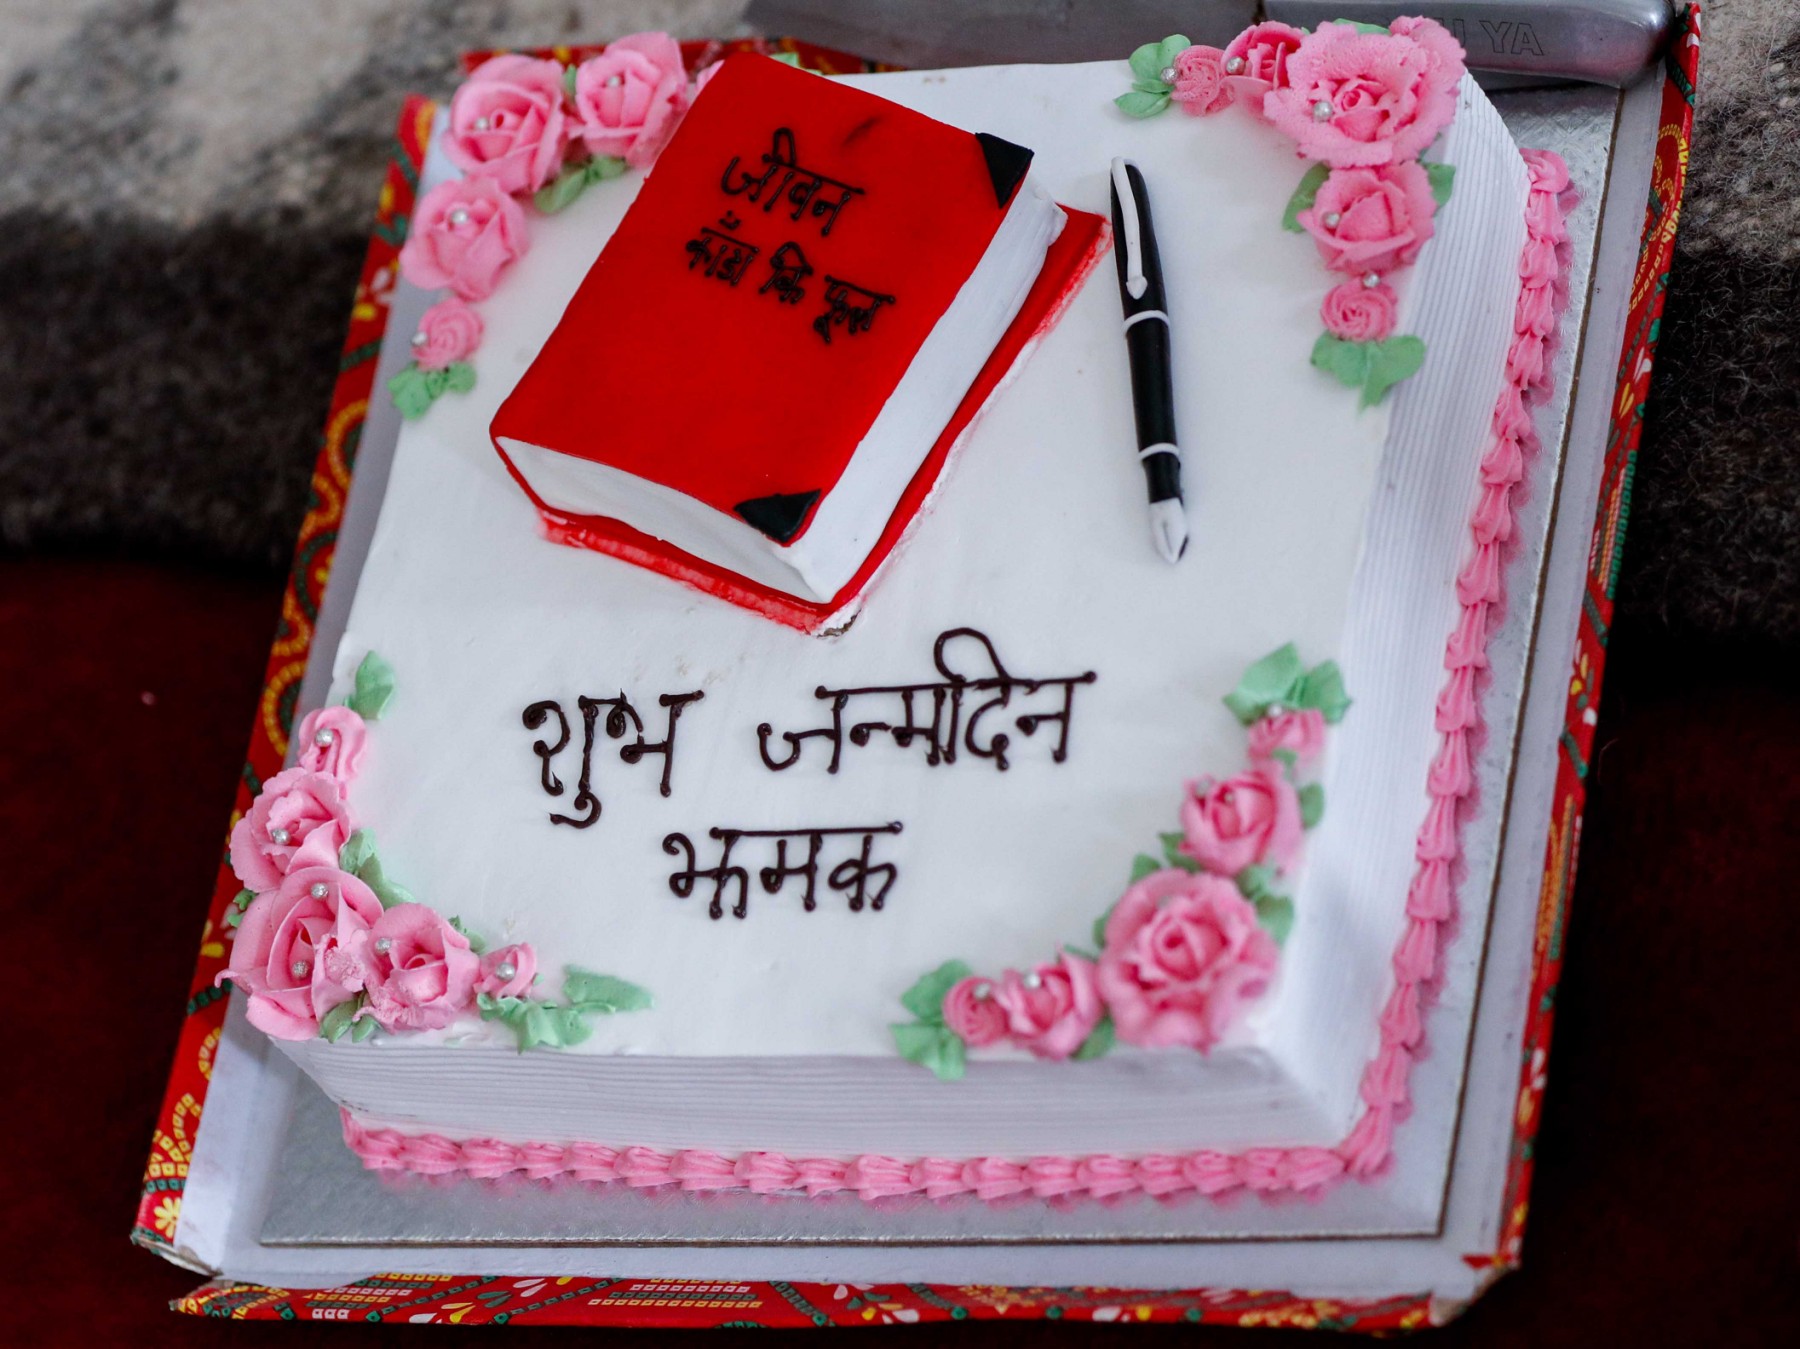 जीवन
काँडा कि फूल
शुभ जन्मदिन
झमक